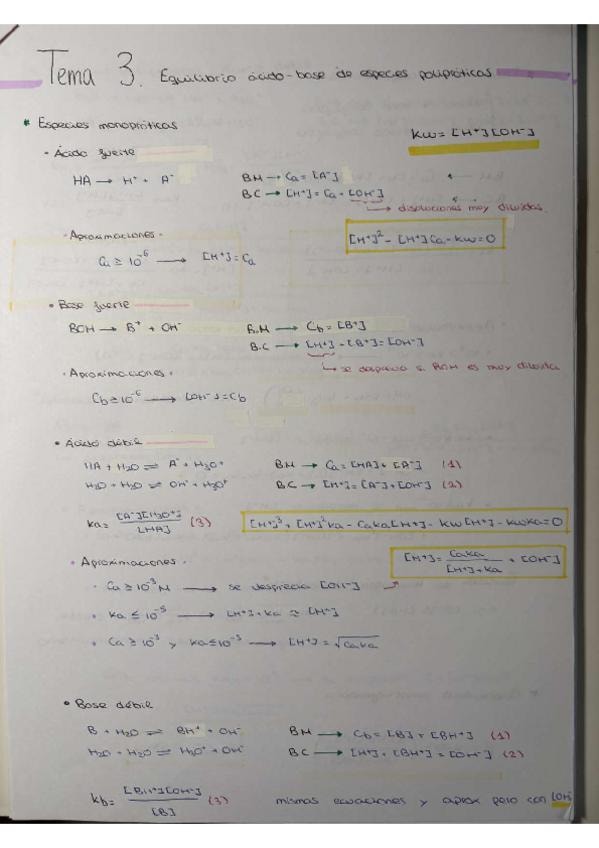 Tema 3. Equilibrio ácido-base de especies polipróticas
* Especies monopróticas
Kw = [H⁺][OH⁻]
- Ácido fuerte
HA → H⁺ + A⁻
BM → Ca = [A⁻]
BC → [H⁺] = Ca + [OH⁻]
→ disoluciones muy diluidas
[H⁺]² - [H⁺]Ca - Kw = 0
- Aproximaciones -
Ca ≥ 10⁻⁶ → [H⁺] = Ca
• Base fuerte
BOH → B⁺ + OH⁻
B.M → Cb = [B⁺]
B.C → [H⁺] + [B⁺] = [OH⁻]
→ se desprecia si BOH es muy diluida
- Aproximaciones -
Cb ≥ 10⁻⁶ → [OH⁻] = Cb
• Ácido débil
HA + H₂O ⇌ A⁻ + H₃O⁺
BM → Ca = [HA] + [A⁻] (1)
H₂O + H₂O ⇌ OH⁻ + H₃O⁺
BC → [H⁺] = [A⁻] + [OH⁻] (2)
Ka = [A⁻][H₃O⁺] / [HA] (3)
[H⁺]³ + [H⁺]²Ka - CaKa[H⁺] - Kw[H⁺] - KwKa = 0
[H⁺] = CaKa / [H⁺] + Ka + [OH⁻]
• Aproximaciones -
• Ca ≥ 10⁻³ M → se desprecia [OH⁻]
• Ka ≤ 10⁻⁵ → [H⁺] + Ka ≈ [H⁺]
• Ca ≥ 10⁻³ y Ka ≤ 10⁻⁵ → [H⁺] = √CaKa
• Base débil
B + H₂O ⇌ BH⁺ + OH⁻
BM → Cb = [B] + [BH⁺] (1)
H₂O + H₂O ⇌ H₃O⁺ + OH⁻
BC → [H⁺] + [BH⁺] = [OH⁻] (2)
Kb = [BH⁺][OH⁻] / [B] (3)
mismas ecuaciones y aprox pero con [OH⁻